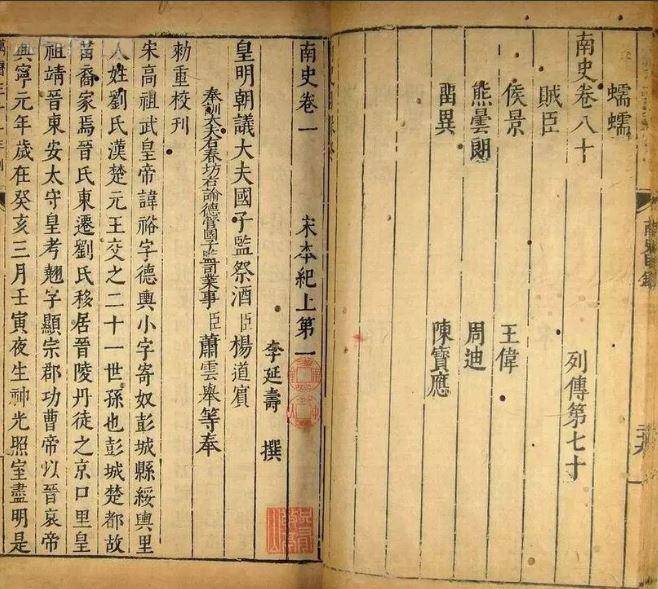 蠕蠕
南史卷八十 列傳第七十
賊臣
侯景 王偉
熊曇朗 周迪
留異 陳寶應
南史卷一 宋本紀上第一
李延壽 撰
皇明朝議大夫國子監祭酒臣楊道賓
奉訓大夫右春坊右諭德管國子監司業事臣蕭雲舉等奉
勑重校刊
宋高祖武皇帝諱裕字德輿小字寄奴彭城縣綏輿里
人姓劉氏漢楚元王交之二十一世孫也彭城楚都故
苗裔家焉晉氏東遷劉氏移居晉陵丹徒之京口里皇
祖靖晉東安太守皇考翹字顯宗郡功曹帝以晉哀帝
興寧元年歲在癸亥三月壬寅夜生神光照室盡明是